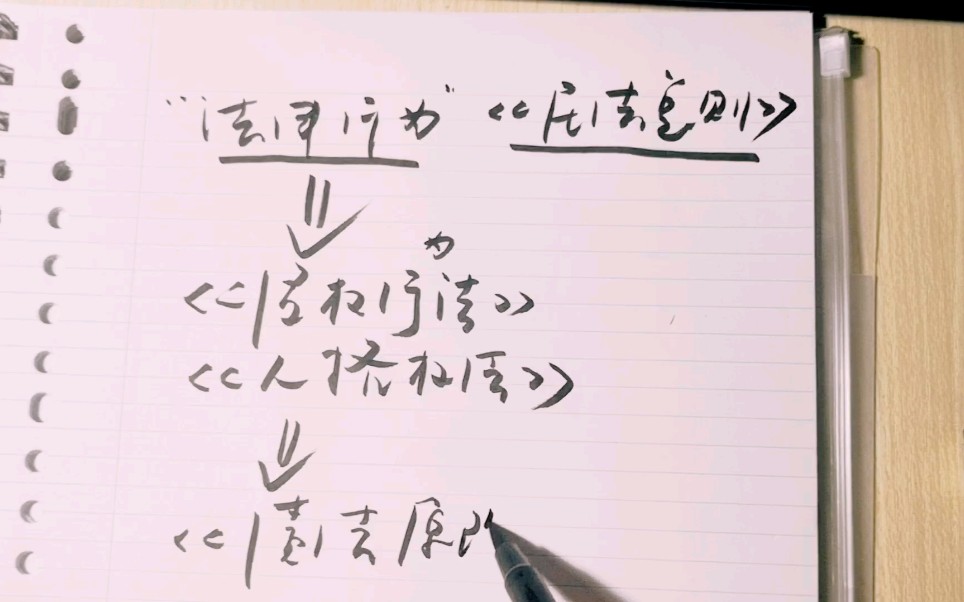 “法律行为” <<民法总则>>
<<侵权行为法>>
<<人格权法>>
<<债法原